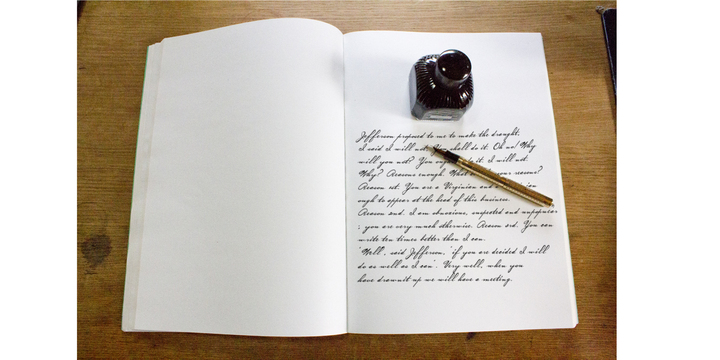 Jefferson proposed to me to make the draught.
I said I will not. You shall do it. Oh no! Why
will you not? You it. I will not.
Why? Reasons enough. What your reasons?
Reason 1st. You are a Virginian and a
ough to appear at the head of this business.
Reason 2nd. I am obnoxious, suspected and unpopular
: you are very much otherwise. Reason 3rd. You can
write ten times better than I can.
'Well', said Jefferson, 'if you are decided I will
do as well as I can'. Very well, when you
have drawn it up we will have a meeting.